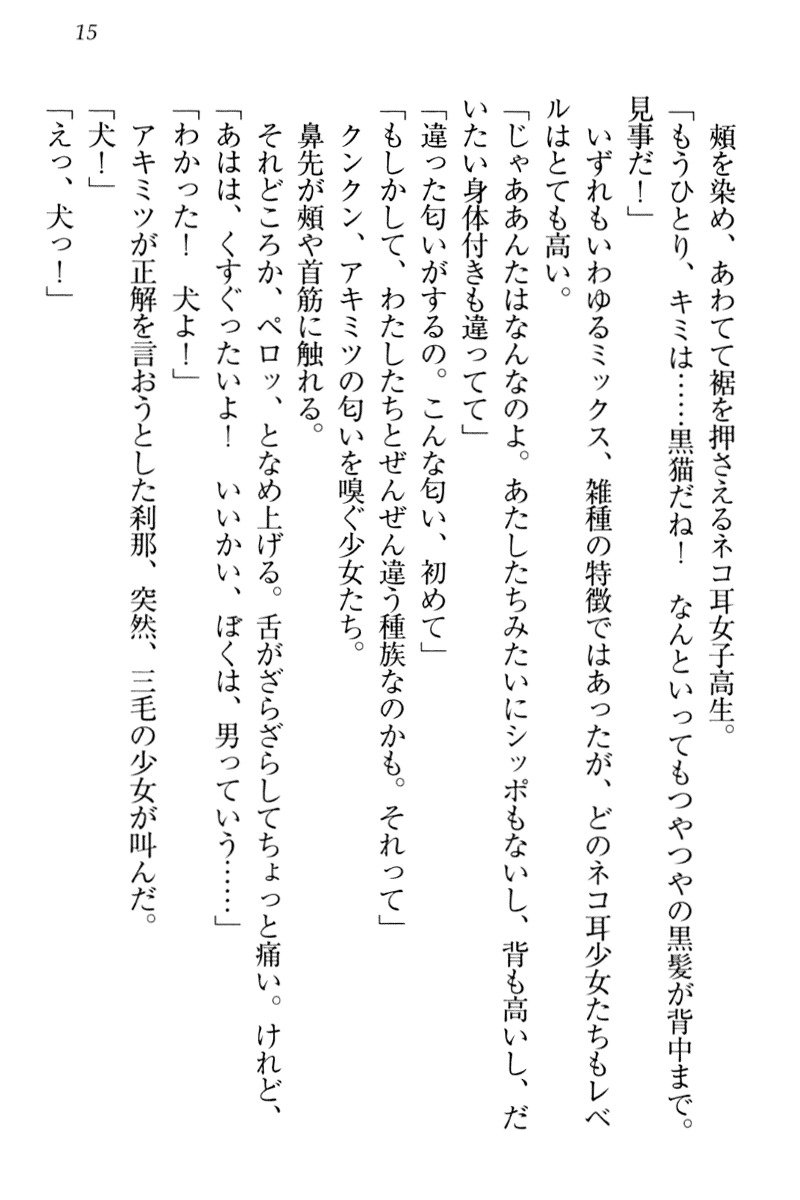 15
頰を染め、あわてて裾を押さえるネコ耳女子高生。
「もうひとり、キミは……黒猫だね！　なんといってもつやつやの黒髪が背中まで。
見事だ！」
いずれもいわゆるミックス、雑種の特徴ではあったが、どのネコ耳少女たちもレベ
ルはとても高い。
「じゃああんたはなんなのよ。あたしたちみたいにシッポもないし、背も高いし、だ
いたい身体付きも違ってて」
「違った匂いがするの。こんな匂い、初めて」
「もしかして、わたしたちとぜんぜん違う種族なのかも。それって」
クンクン、アキミツの匂いを嗅ぐ少女たち。
鼻先が頰や首筋に触れる。
それどころか、ペロッ、となめ上げる。舌がざらざらしてちょっと痛い。けれど、
「あはは、くすぐったいよ！　いいかい、ぼくは、男っていう……」
「わかった！　犬よ！」
アキミツが正解を言おうとした刹那、突然、三毛の少女が叫んだ。
「犬！」
「えっ、犬っ！」